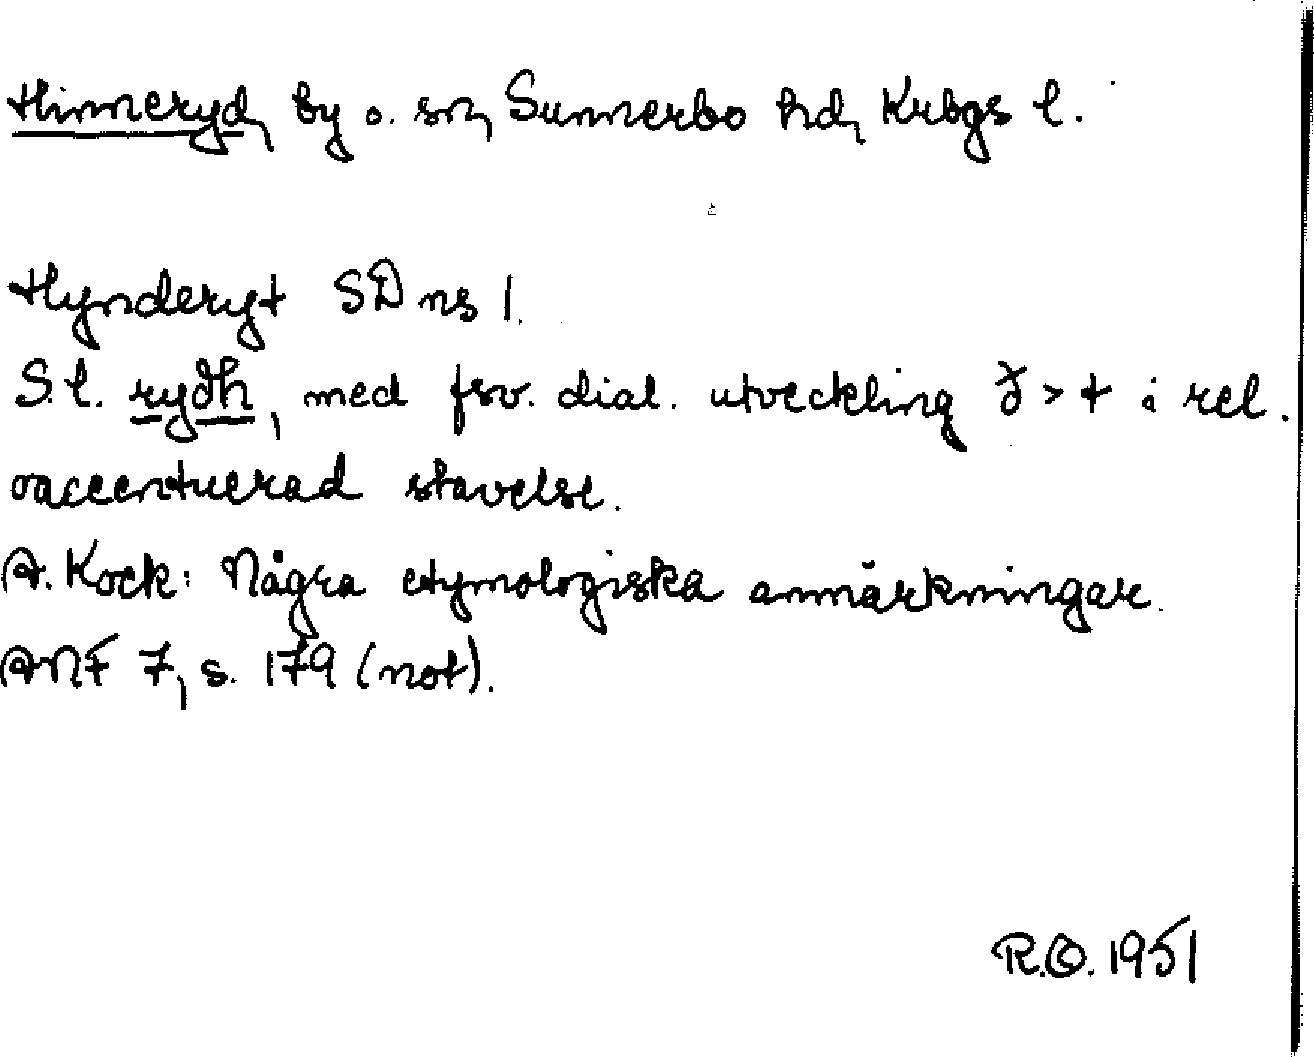 Hinneryd, by o. sn, Sunnerbo hd, Krbgs l.
Hynderyt SD ns 1.
S.l. rydh, med fsv. dial. utveckling ð > t i rel.
oaccentuerad stavelse.
A. Kock: Några etymologiska anmärkningar.
ANF 7, s. 179 (not).
R.O. 1951